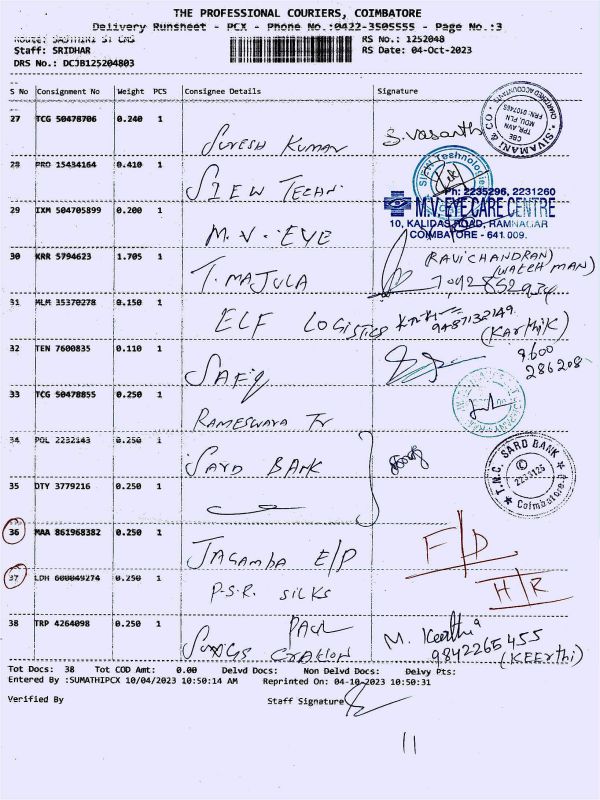 THE PROFESSIONAL COURIERS, COIMBATORE
Delivery Runsheet - PCX - Phone No.:0422-3505555 - Page No.:3
RS No.: 1252048
Staff: SRIDHAR
RS Date: 04-Oct-2023
DRS No.: DCJB125204803
S No Consignment No Weight PCS Consignee Details Signature
27 TCG 50478706 0.240 1 SURESH KUMAR S.Vasanth
SIVAMANI & CO CHARTERED ACCOUNTANTS
28 PRO 15434164 0.410 1 SIEW TECHN
SIEN Technologies
Ph: 2235296, 2231260
M.V. EYE CARE CENTRE
10, KALIDAS ROAD, RAMNAGAR
COIMBATORE - 641 009.
29 IXM 504705899 0.200 1 M.V. EYE
30 KRR 5794623 1.705 1 T. MAJULA
(RAVICHANDRAN)
(WATCH MAN)
31 MLM 35370278 0.150 1 ELF LOGISTICS
9487132149
(KARTHIK)
32 TEN 7600835 0.110 1 SAFIQ
9600
286208
33 TCG 50478855 0.250 1 RAMESWARA Tr
34 POL 2232143 0.250 1 SARD BANK
T.N.C. SARD BANK
Coimbatore
35 DTY 3779216 0.250 1
36 MAA 861968382 0.250 1 JAGAMBA E/P F/D
37 LDH 600049274 0.250 1 P.S.R. SILKS H/R
38 TRP 4264098 0.250 1 PAUL
CREATION
M. Keerthi
9842265455
(KEErthi)
Tot Docs: 38 Tot COD Amt: 0.00 Delvd Docs: Non Delvd Docs: Delvy Pts:
Entered By :SUMATHIPCX 10/04/2023 10:50:14 AM Reprinted On: 04-10-2023 10:50:31
Verified By Staff Signature
11